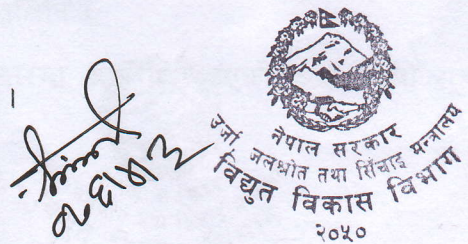 नेपाल सरकार
उर्जा जलश्रोत तथा सिंचाइ मन्त्रालय
विद्युत विकास विभाग
२०५०